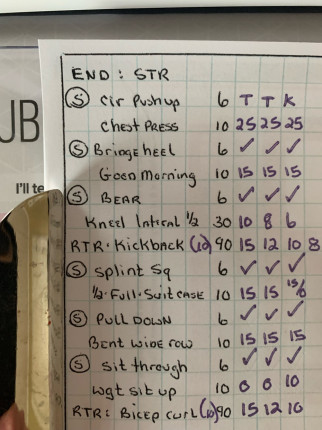 UB
I'll te
END: STR
Ⓢ Cir Pushup 6 T T K
Chest PRESS 10 25 25 25
Ⓢ Bringe heel 6 ✓ ✓ ✓
Goen morning 10 15 15 15
Ⓢ BEAR 6 ✓ ✓ ✓
Kneel Lateral ½ 30 10 8 6
RTR: Kickback (10) 90 15 12 10 8
Ⓢ Splint Sq 6 ✓ ✓ ✓
½·Full·Suitcase 10 15 15 15/6
Ⓢ PULL DOWN 6 ✓ ✓ ✓
Bent wide row 10 15 15 15
Ⓢ Sit through 6 ✓ ✓ ✓
wgt sit up 10 0 0 10
RTR: Bicep curl (10) 90 15 12 10